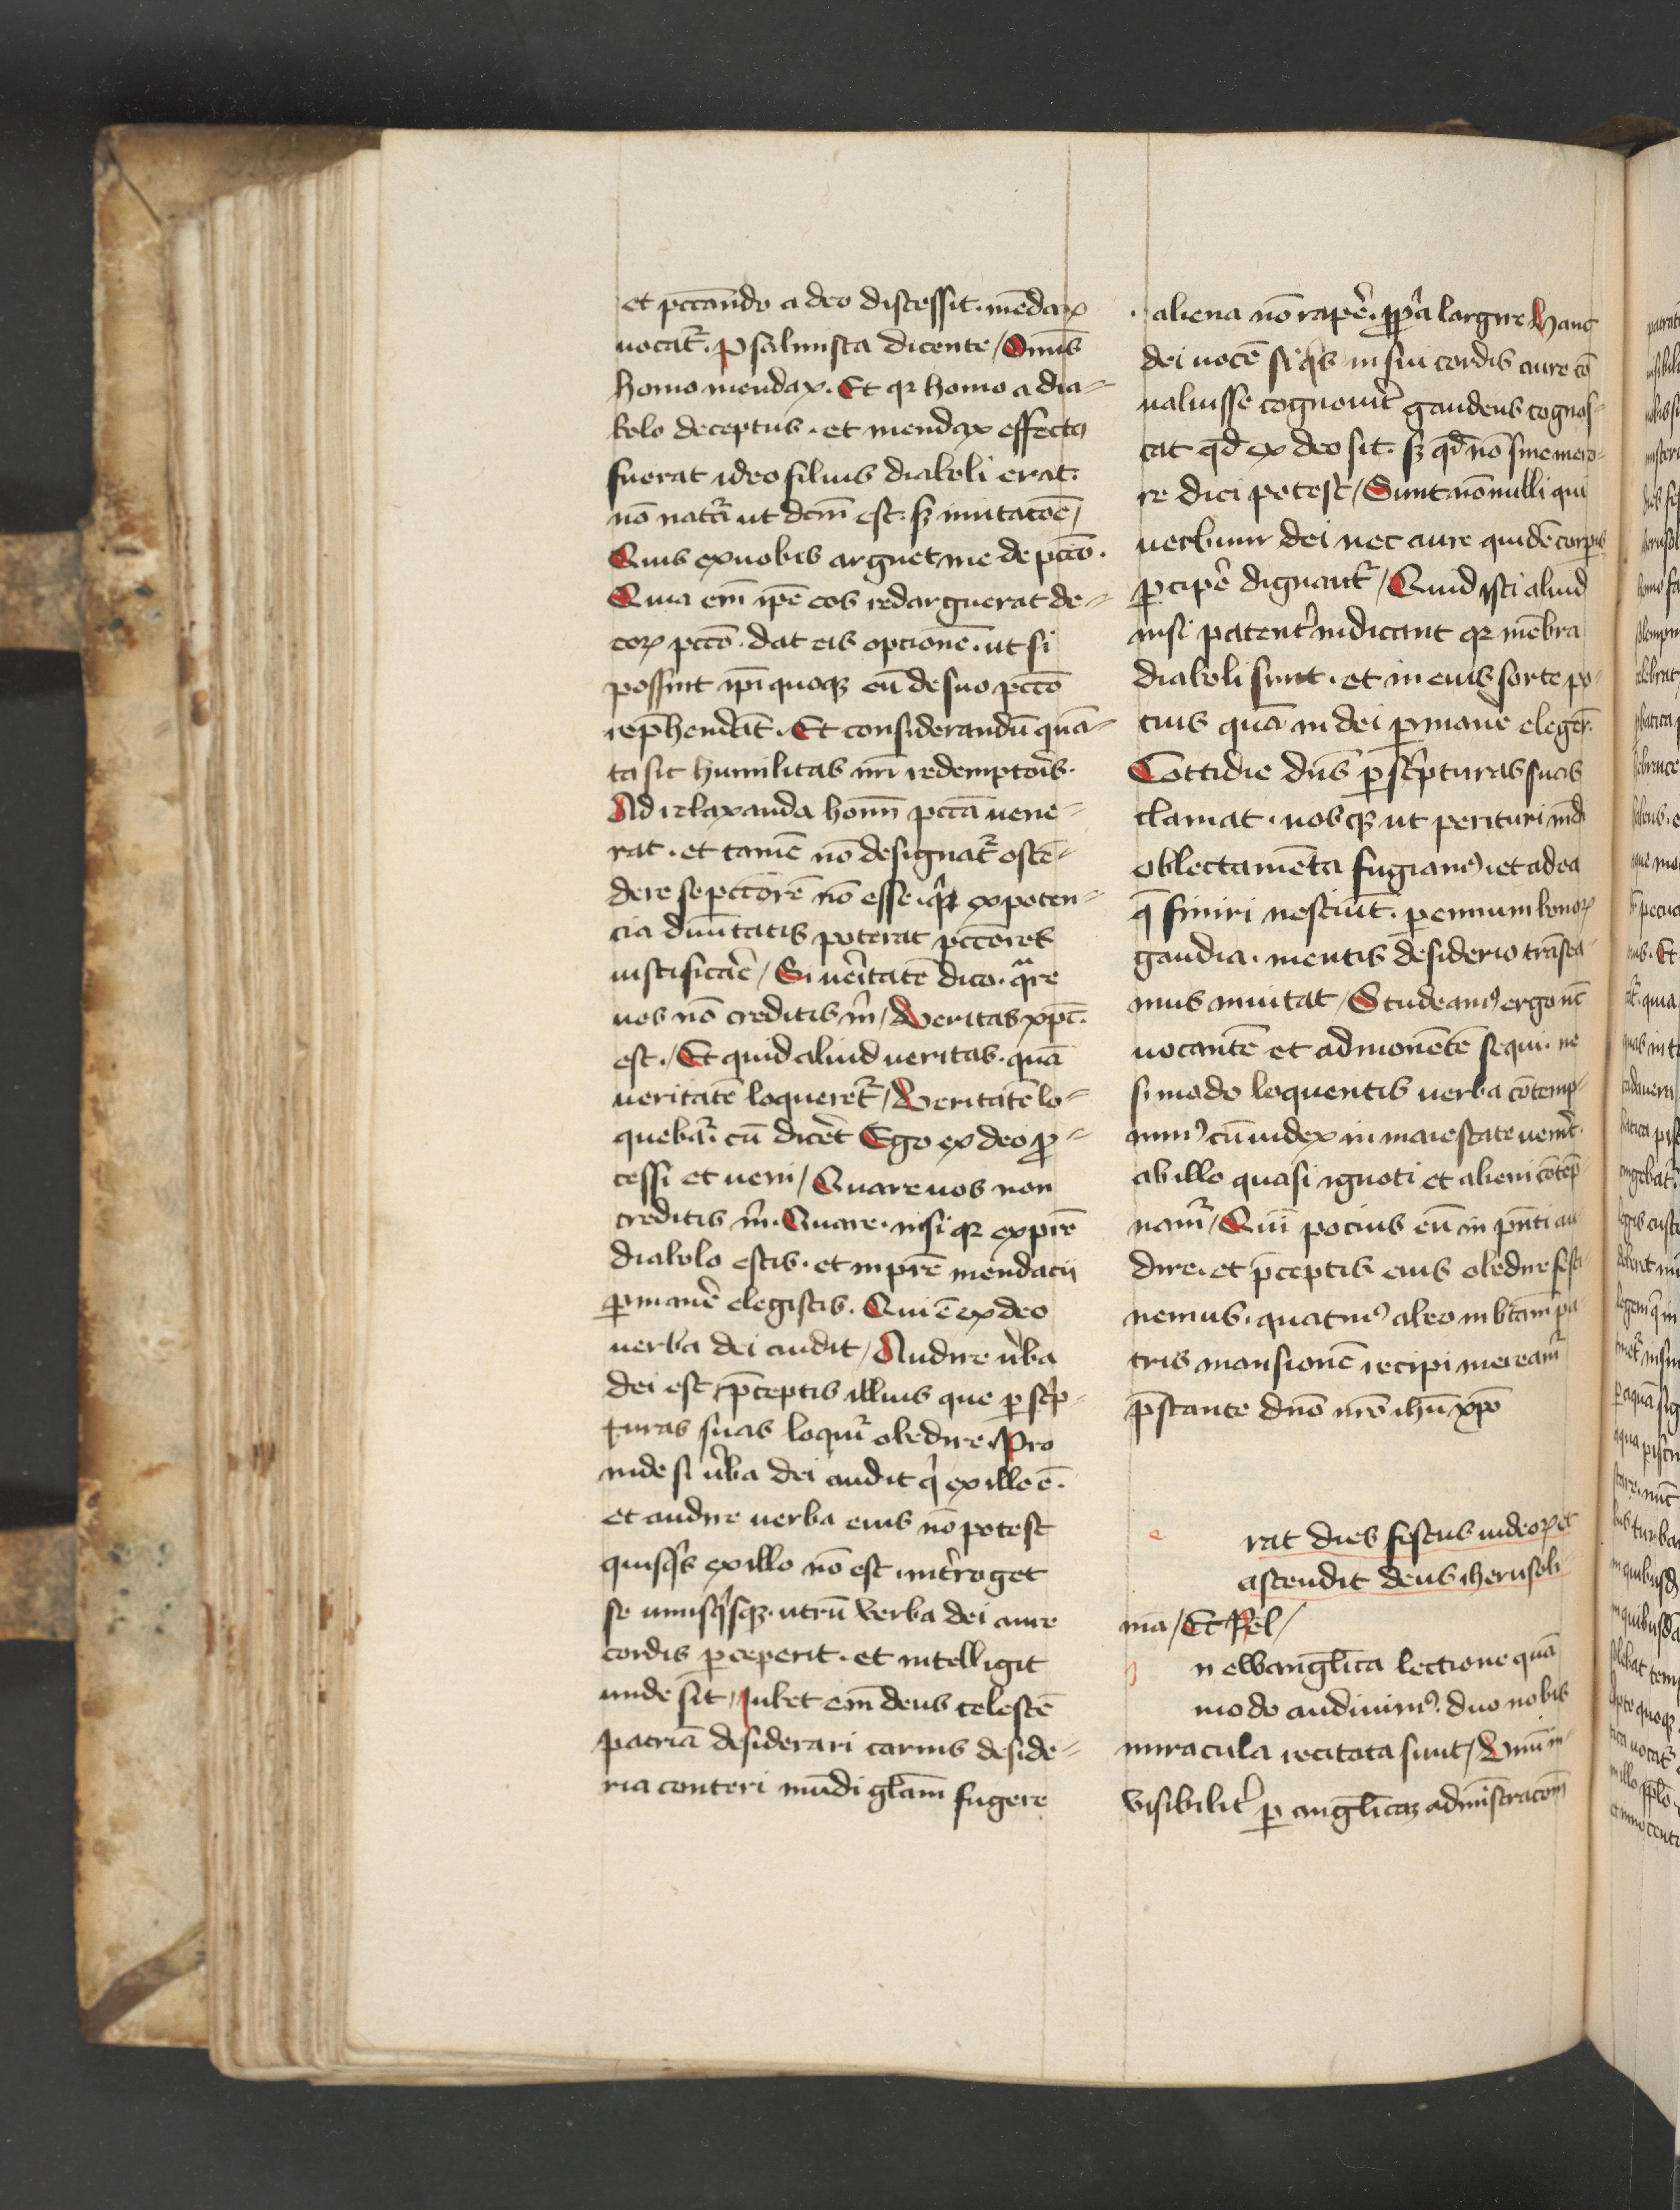 et pctando a deo discessit. mēdax
uocat᷑. psalmista dicente / Omīs
homo mendax. Et qꝛ homo a dia=
bolo deceptus. et mendax effectꝰ
fuerat ideo filius diaboli erat.
nō nat᷑a ut dcm̄ est. sꝫ imitatōe /
Quis ex uobis arguet me de pctō.
Quia em̄ ip̄e eos redarguerat de=
coꝝ pctō. dat eis opcionē. ut si
possint ip̄i quoqꝫ eū de suo pctō
rep̄hendāt. Et considerandū quā=
ta sit humilitas nr̄i redemptoīs.
Ad relaxanda hoīm pctā uene=
rat. et tamē nō designat᷑ ostē=
dere se pctōrē nō esse. qⁱ ex poten=
cia diuītatis poterat pctōres
iustificar̄e / Si ūitatē dico. qᵃre
uos nō creditis m̄ / Veritas xpc̄.
est. / Et quid aliud ueritas. quā
ueritatē loqueret᷑ / Veritatē lo=
quebat᷑. cū dicer̄t Ego ex deo ꝓ=
cessi et ueni / Quare uos non
creditis m̄. Quare. nisi qꝛ ex pr̄e
diabolo estis. et in pr̄e mendacii
ꝑmaner̄e elegistis. Qui ē ex deo
uerba dei audit / Audire ūba
dei est p̄ceptis illius que ꝑ sc̄p=
turas suas loquit᷑ obedire. Pro
inde si ūba dei audit qⁱ ex illo ē.
et audire uerba eius nō potest
quisqⁱs ex illo nō est. int̄roget
se unusqⁱsqꝫ. utrū verba dei aure
cordis ꝑceperit. et intelligit
unde sit / Iubet em̄ deus celestē
patriā desiderari carnis deside=
ria conteri mūdi glām̄ fugere
aliena nō raper̄e. ꝓpria largire Hanc
dei uocē si qⁱs in sui cordis aure cō
ualuisse cognouit̄ gaudens cognos=
cat qd̄ ex deo sit. sꝫ qd̄ nō sine mero=
re dici potest / Sunt nōnulli qui
uerbum dei nec aure quidē corpis
ꝑciper̄e dignant᷑ / Quid isti aliud
nisi patent̄ indicant qꝛ mēbra
diaboli sunt. et in eius sorte po=
cius quā in dei ꝑmaner̄e eleger̄.
Cottidie dn̄s ꝑ sc̄pturas suas
clamat. nosqꝫ ut perituri mūdi
oblectamēta fugiamꝰ. et ad ea
q̄ finiri nesciūt. perennium bonoꝝ
gaudia. mentis desiderio trāsea=
mus inuitat / Studeamꝰ ergo nc̄
uocantē et admonētē sequi. ne
si modo loquentis uerba cōtemp=
nimꝰ cū iudex in maiestate uenit̄.
ab illo quasi ignoti et alieni cōtēp=
namr̄ / Quī pocius eū in pn̄ti au
dire. et p̄ceptis eius obedire festi=
nemus. quatinꝰ ab eo in bt̄am pa
tris mansionē recipi mereamr̄
p̄stante dn̄o nr̄o ihū xpō
e rat dies festus iudeoꝝ et
ascendit deus iherusoli=
ma / Et Rel /
I n ewangl̄ica lectione quā
modo audiuimꝰ. duo nobis
miracula recitata sunt / Vnū in=
visibilit̄ ꝑ angl̄icaꝫ admīstracōm̄